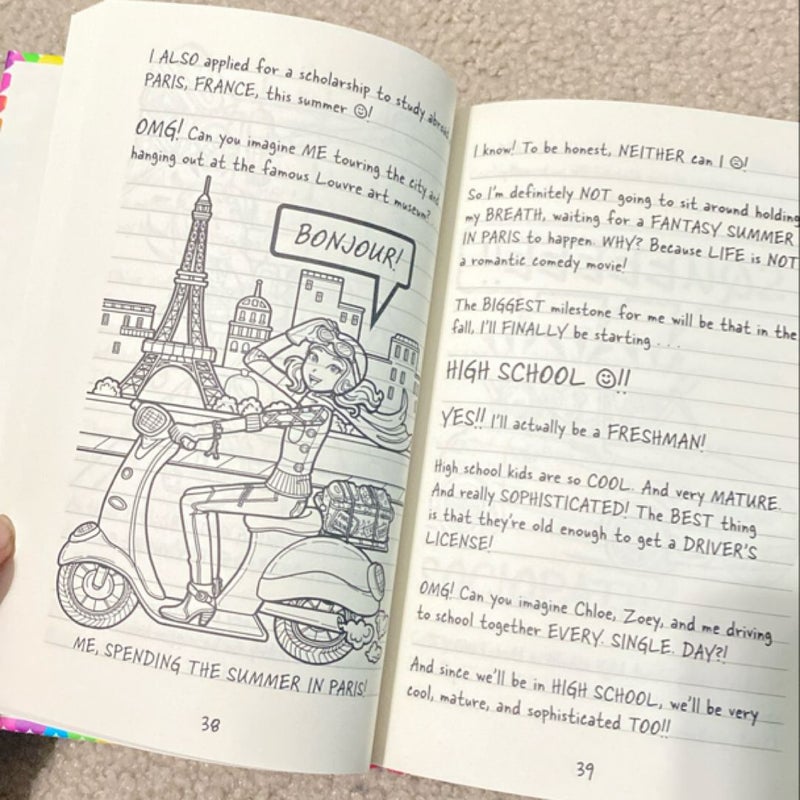 I ALSO applied for a scholarship to study abroad
PARIS, FRANCE, this summer ☺!
OMG! Can you imagine ME touring the city and
hanging out at the famous Louvre art museum?
BONJOUR!
ME, SPENDING THE SUMMER IN PARIS!
38
I know! To be honest, NEITHER can I ☹!
So I'm definitely NOT going to sit around holding
my BREATH, waiting for a FANTASY SUMMER
IN PARIS to happen. WHY? Because LIFE is NOT
a romantic comedy movie!
The BIGGEST milestone for me will be that in the
fall, I'll FINALLY be starting . . .
HIGH SCHOOL ☺!!
YES!! I'll actually be a FRESHMAN!
High school kids are so COOL. And very MATURE.
And really SOPHISTICATED! The BEST thing
is that they're old enough to get a DRIVER'S
LICENSE!
OMG! Can you imagine Chloe, Zoey, and me driving
to school together EVERY. SINGLE. DAY?!
And since we'll be in HIGH SCHOOL, we'll be very
cool, mature, and sophisticated TOO!!
39